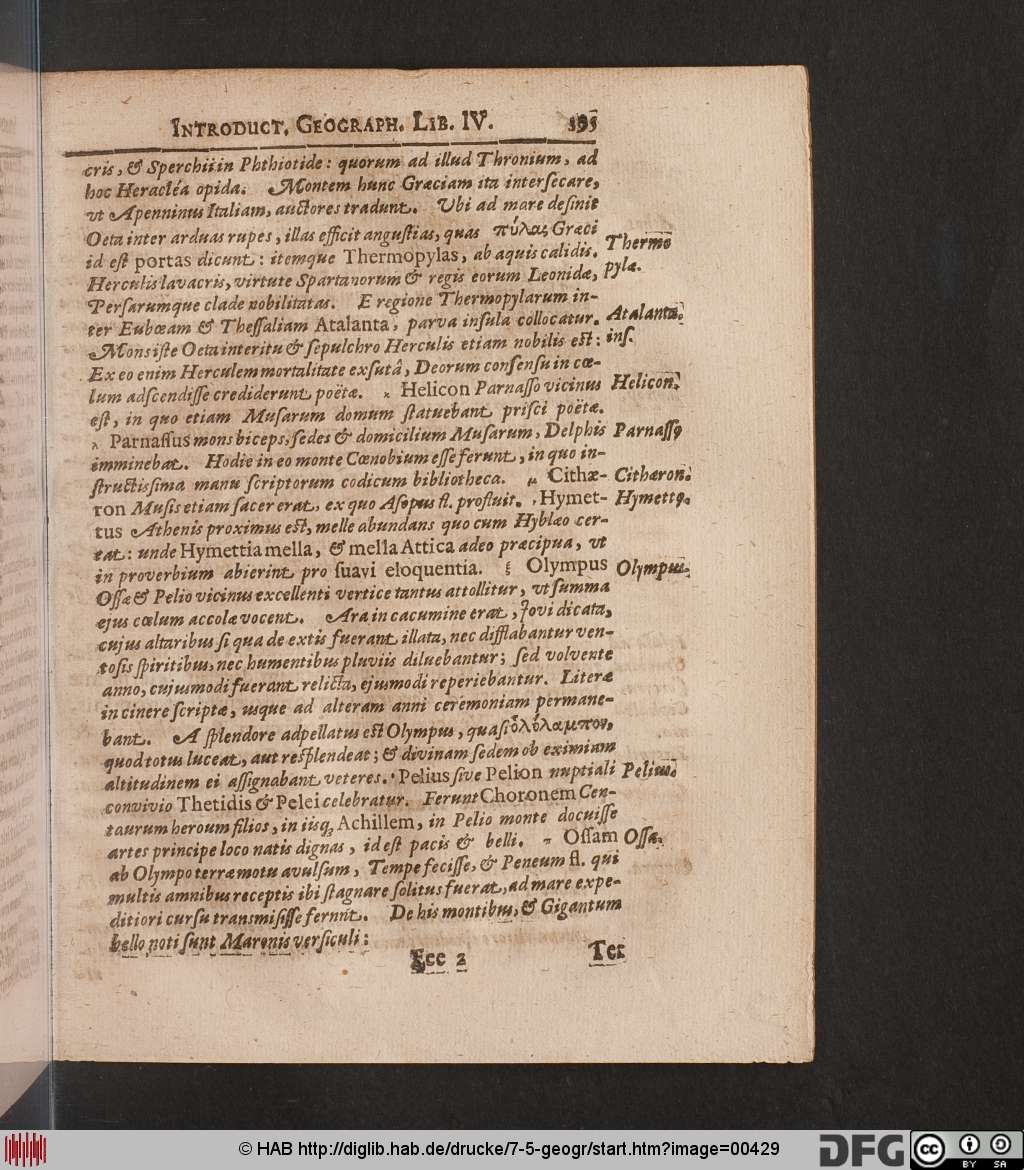 INTRODUCT. GEOGRAPH. LIB. IV. 393
cris, & Sperchii in Phthiotide: quorum ad illud Thronium, ad
hoc Heracléa opida. Montem hunc Græciam ita intersecare,
ut Apenninus Italiam, auctores tradunt. Ubi ad mare desinit
Oeta inter arduas rupes, illas efficit angustias, quas πύλας Græci
id est portas dicunt: itemque Thermopylas, ab aquis calidis.
Thermo
pylæ.
Herculis lavacris, virtute Spartanorum & regis eorum Leonidæ,
Persarumque clade nobilitatas. E regione Thermopylarum in-
ter Eubœam & Thessaliam Atalanta, parva insula collocatur.
Atalanta.
ins.
Mons iste Oeta interitu & sepulchro Herculis etiam nobilis est:
Ex eo enim Herculem mortalitate exsutâ, Deorum consensu in cœ-
lum adscendisse crediderunt poëtæ. Helicon Parnasso vicinus
Helicon.
est, in quo etiam Musarum domum statuebant prisci poëtæ.
λ Parnassus mons biceps, sedes & domicilium Musarum, Delphis
Parnasso
imminebat. Hodie in eo monte Cœnobium esse ferunt, in quo in-
structissima manu scriptorum codicum bibliotheca. μ Cithæ-
Cithæron.
ron Musis etiam sacer erat, ex quo Asopus fl. profluit. Hymet-
Hymetto.
tus Athenis proximus est, melle abundans quo cum Hyblæo cer-
tat: unde Hymettia mella, & mella Attica adeo præcipua, ut
in proverbium abierint pro suavi eloquentia. ξ Olympus
Olympus.
Ossæ & Pelio vicinus excellenti vertice tantus attollitur, ut summa
ejus cœlum accolæ vocent. Ara in cacumine erat, Jovi dicata,
cujus altaribus si qua de extis fuerant illata, nec difflabantur ven-
tosis spiritibus, nec humentibus pluviis diluebantur; sed volvente
anno, cujusmodi fuerant relicta, ejusmodi reperiebantur. Literæ
in cinere scriptæ, usque ad alteram anni ceremoniam permane-
bant. A splendore adpellatus est Olympus, quasi ὁλύλαμπον,
quod totus luceat, aut resplendeat; & divinam sedem ob eximiam
altitudinem ei assignabant veteres. Pelius sive Pelion nuptiali
Pelius.
convivio Thetidis & Pelei celebratur. Ferunt Choronem Cen-
taurum heroum filios, in iisq; Achillem, in Pelio monte docuisse
artes principe loco natis dignas, id est pacis & belli. π Ossam
Ossa.
ab Olympo terræmotu avulsum, Tempe fecisse, & Peneum fl. qui
multis amnibus receptis ibi stagnare solitus fuerat, ad mare expe-
ditiori cursu transmisisse fernnt. De his montibus, & Gigantum
bello noti sunt Maronis versiculi:
Eee 2 Ter
© HAB http://diglib.hab.de/drucke/7-5-geogr/start.htm?image=00429
DFG
cc
BY SA